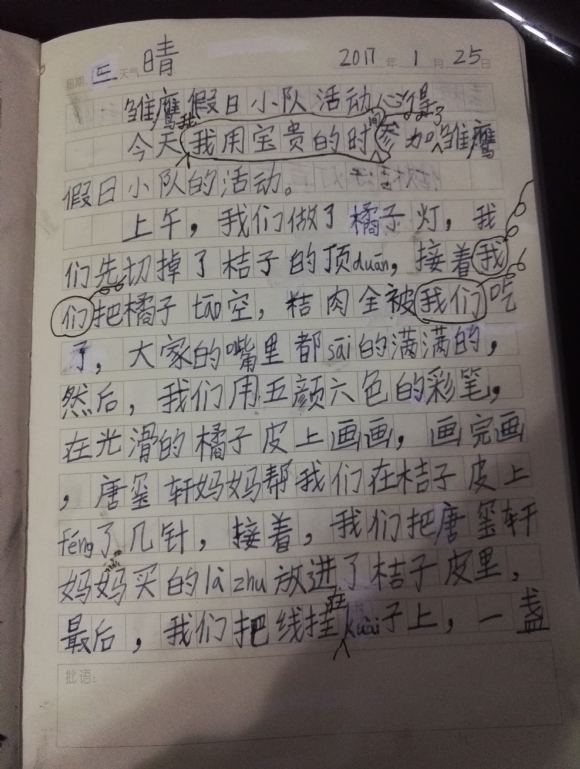 星期 三 天气 晴 2017 年 1 月 25 日
雏鹰假日小队活动心得
今天我用宝贵的时间参加了雏鹰
假日小队的活动。
上午，我们做了橘子灯，我
们先切掉了桔子的顶duān，接着我
们把橘子tāo空，桔肉全被我们吃
了，大家的嘴里都sāi的满满的，
然后，我们用五颜六色的彩笔，
在光滑的橘子皮上画画，画完画
，唐玺轩妈妈帮我们在桔子皮上
féng了几针，接着，我们把唐玺轩
妈妈买的là zhu放进了桔子皮里，
最后，我们把线挂在kuài子上，一盏
批语：